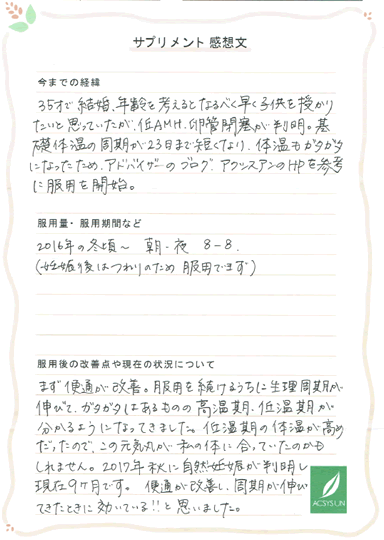 サプリメント 感想文
今までの経緯
35才で結婚、年齢を考えるとなるべく早く子供を授かり
たいと思っていたが、低AMH、卵管閉塞が判明。基
礎体温の周期が23日まで短くなり、体温もガタガタ
になったため、アドバイザーのブログ、アクシスアンのHPを参考
に服用を開始。
服用量・服用期間など
2016年の冬頃〜 朝・夜 8-8.
(妊娠後はつわりのため服用できず)
服用後の改善点や現在の状況について
まず便通が改善。服用を続けるうちに生理周期が
伸びて、ガタガタはあるものの高温期、低温期が
分かるようになってきました。低温期の体温が高め
だったので、この元気丸が私の体に合っていたのかも
しれません。2017年秋に自然妊娠が判明し
現在9ヶ月です。便通が改善し、周期が伸び
てきたときに効いている!!と思いました。
ACSYSUN